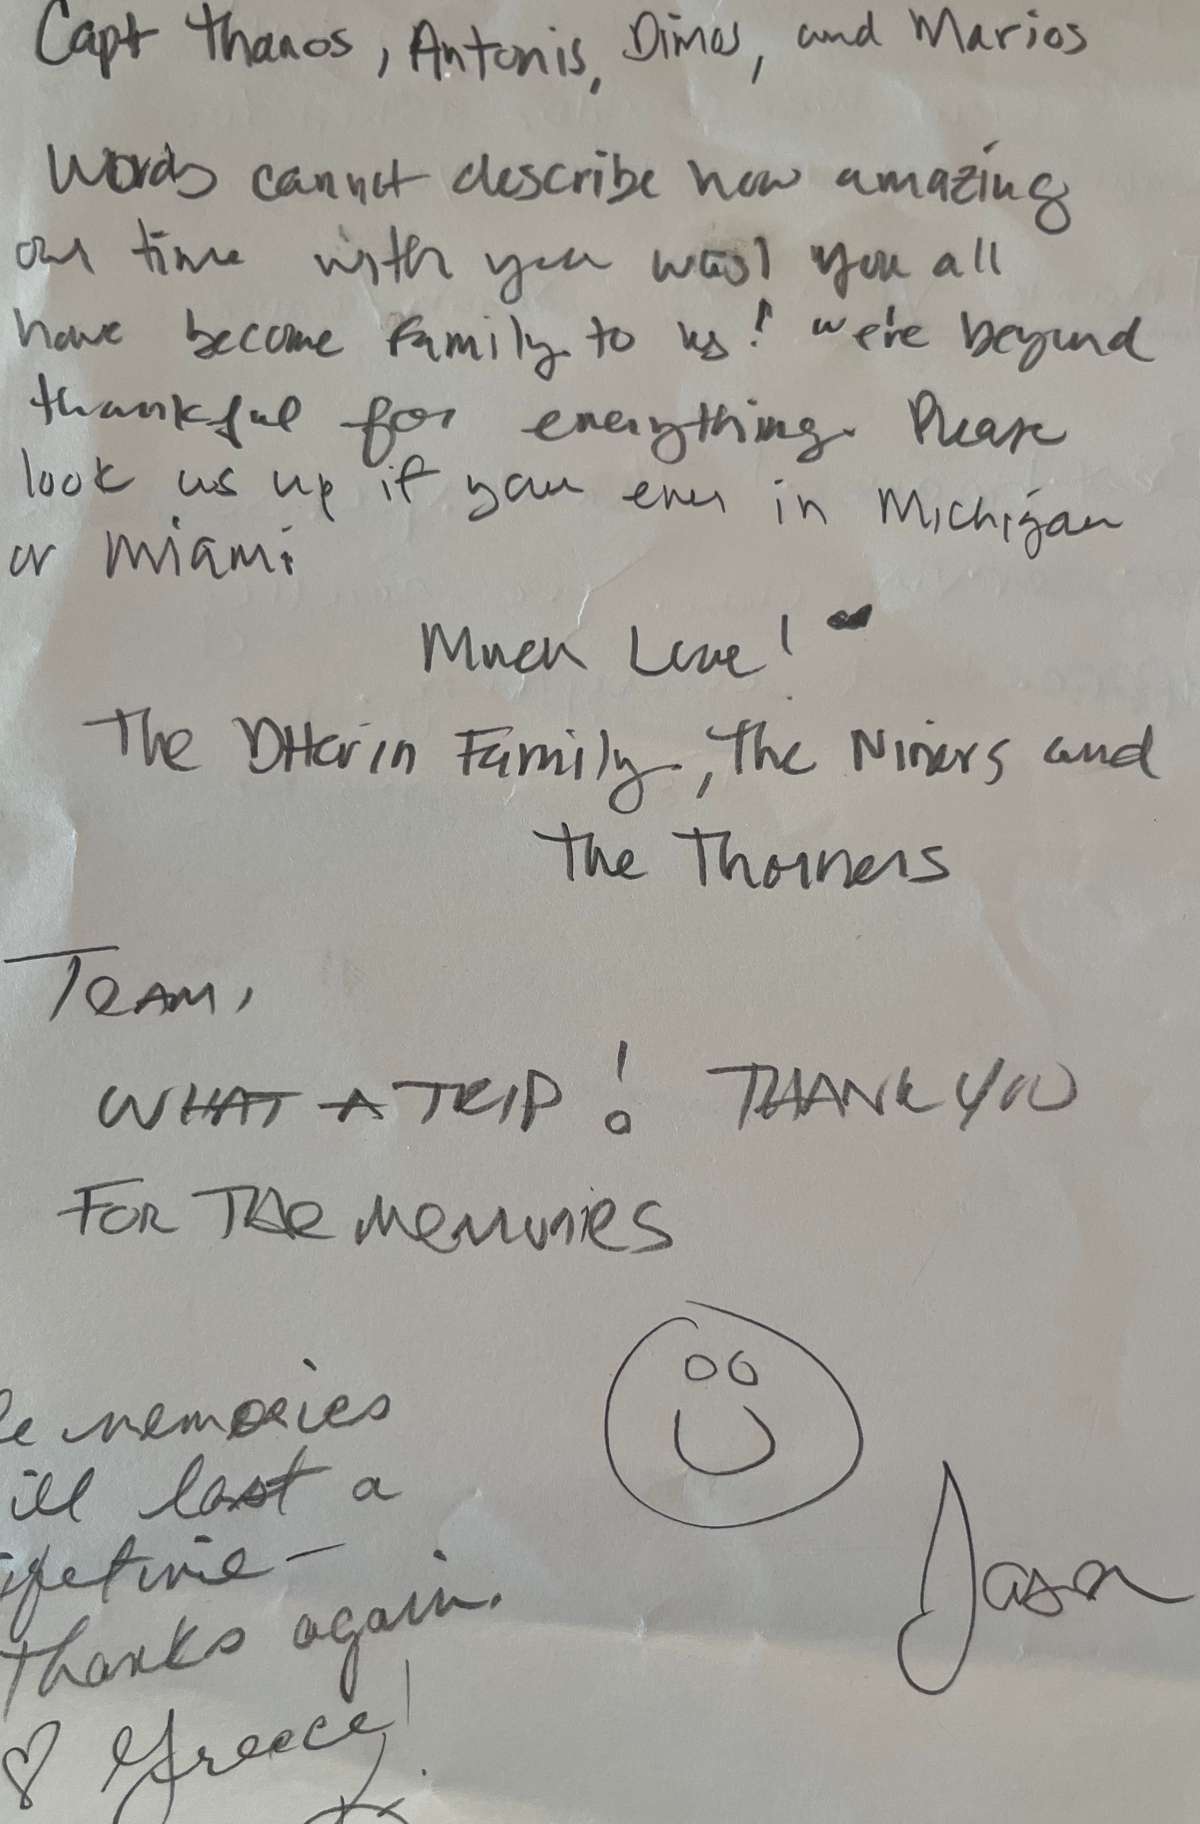 Capt Thanos, Antonis, Dimos, and Marios
Words cannot describe how amazing
our time with you was! You all
have become family to us! we're beyond
thankful for everything. Please
look us up if your ever in Michigan
or Miami
Much Love!
The Family, The Niners and
The Thorners
TEAM,
WHAT A TRIP! THANK YOU
FOR THE MEMORIES
memories
ill last a
ifetime –
Thanks again.
♡ Greece!
Jason